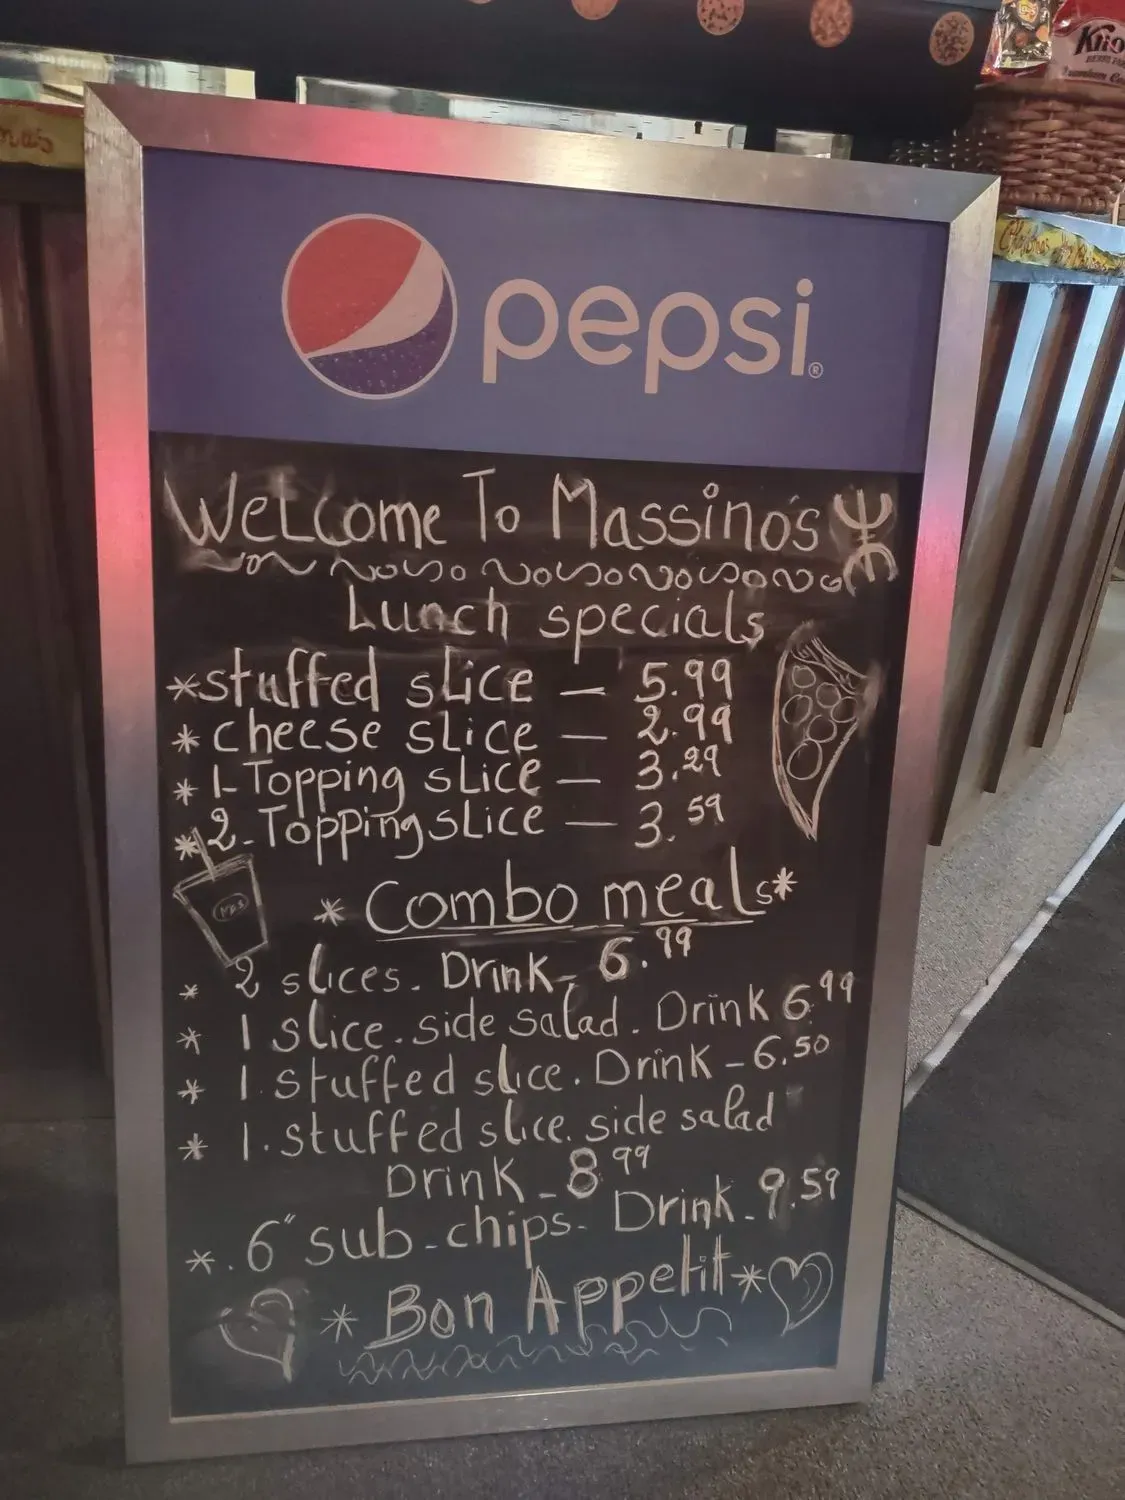 pepsi®
Welcome To Massino's
Lunch specials
*stuffed slice — 5.99
* cheese slice — 2.99
* 1-Topping slice — 3.29
* 2-Topping slice — 3.59
* Combo meals*
* 2 slices. Drink- 6.99
* 1 slice. side salad. Drink 6.99
* 1. stuffed slice. Drink - 6.50
* 1. stuffed slice. side salad
Drink - 8.99
*. 6" sub - chips - Drink - 9.59
* Bon Appetit *